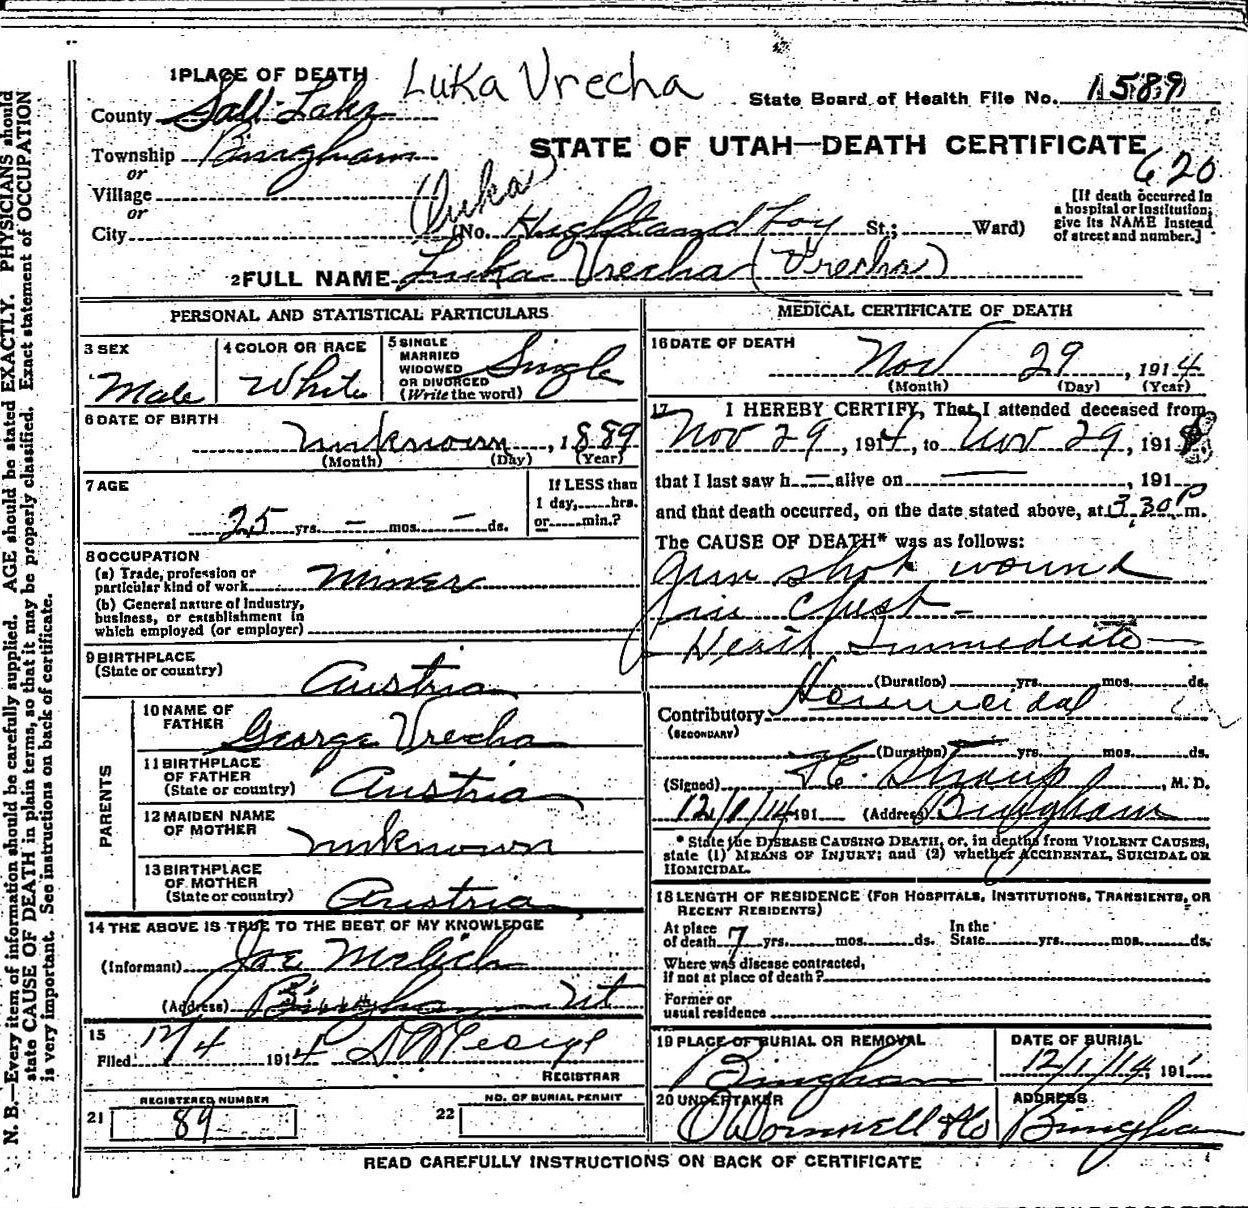 1 PLACE OF DEATH
Luka Vrecha
State Board of Health File No. 1589
County Salt Lake
STATE OF UTAH—DEATH CERTIFICATE
620
Township Bingham
or
Village
or
City
(Luka)
(No. Highland Boy St.; Ward)
[If death occurred in
a hospital or institution,
give its NAME instead
of street and number.]
2 FULL NAME Luka Vrecha (Vrecha)
PERSONAL AND STATISTICAL PARTICULARS
3 SEX
Male
4 COLOR OR RACE
White
5 SINGLE
MARRIED
WIDOWED
OR DIVORCED
(Write the word)
Single
6 DATE OF BIRTH
unknown, 1889
(Month) (Day) (Year)
7 AGE
25 yrs. — mos. — ds.
If LESS than
1 day,......hrs.
or......min.?
8 OCCUPATION
(a) Trade, profession or
particular kind of work Miner
(b) General nature of Industry,
business, or establishment in
which employed (or employer)
9 BIRTHPLACE
(State or country)
Austria
PARENTS
10 NAME OF
FATHER
George Vrecha
11 BIRTHPLACE
OF FATHER
(State or country)
Austria
12 MAIDEN NAME
OF MOTHER
unknown
13 BIRTHPLACE
OF MOTHER
(State or country)
Austria
14 THE ABOVE IS TRUE TO THE BEST OF MY KNOWLEDGE
(Informant) Joe Melich
(Address) Bingham Ut
15
Filed 12/4 1914
REGISTRAR
21
REGISTERED NUMBER
89
22
NO. OF BURIAL PERMIT
MEDICAL CERTIFICATE OF DEATH
16 DATE OF DEATH
Nov 29, 1914
(Month) (Day) (Year)
17 I HEREBY CERTIFY, That I attended deceased from
Nov 29, 1914, to Nov 29, 191
that I last saw h — alive on —, 191
and that death occurred, on the date stated above, at 3.30 P m.
The CAUSE OF DEATH* was as follows:
Gun shot wound
in Chest —
Death Immediate —
(Duration) yrs. mos. ds.
Contributory Homicidal
(SECONDARY)
(Duration) yrs. mos. ds.
(Signed) Straup, M. D.
12/1/14 191 (Address) Bingham
* State the DISEASE CAUSING DEATH, or, in deaths from VIOLENT CAUSES,
state (1) MEANS OF INJURY; and (2) whether ACCIDENTAL, SUICIDAL OR
HOMICIDAL.
18 LENGTH OF RESIDENCE (FOR HOSPITALS, INSTITUTIONS, TRANSIENTS, OR
RECENT RESIDENTS)
At place
of death 7 yrs. mos. ds.
In the
State yrs. mos. ds.
Where was disease contracted,
if not at place of death?
Former or
usual residence
19 PLACE OF BURIAL OR REMOVAL
Bingham
DATE OF BURIAL
12/1/14, 191
20 UNDERTAKER
O'Donnell & Co
ADDRESS
Bingham
READ CAREFULLY INSTRUCTIONS ON BACK OF CERTIFICATE
N. B.—Every item of information should be carefully supplied. AGE should be stated EXACTLY. PHYSICIANS should
state CAUSE OF DEATH in plain terms, so that it may be properly classified. Exact statement of OCCUPATION
is very important. See instructions on back of certificate.